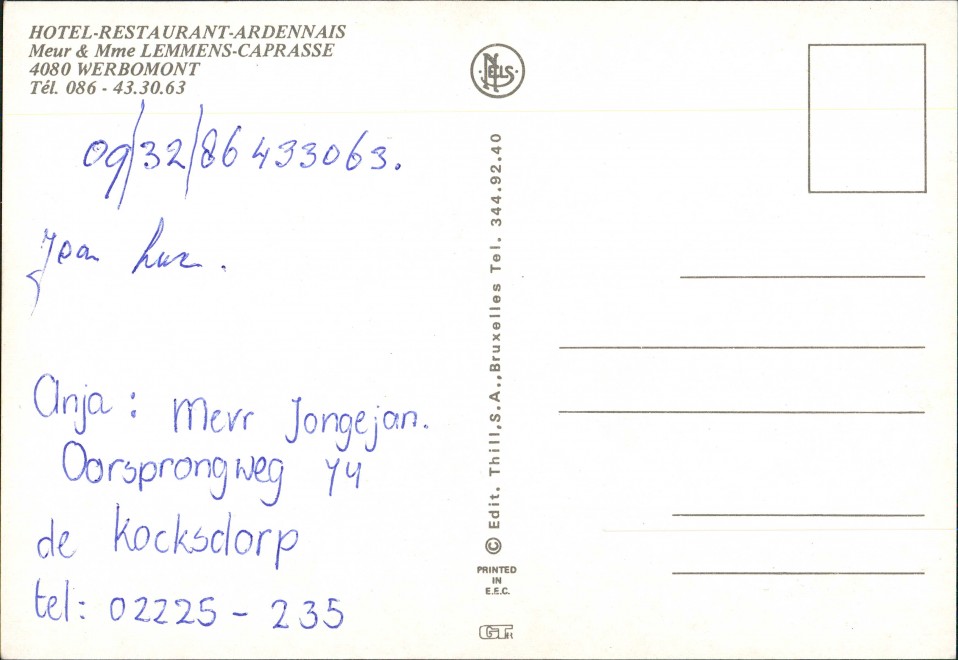 HOTEL-RESTAURANT-ARDENNAIS
Meur & Mme LEMMENS-CAPRASSE
4080 WERBOMONT
Tél. 086 - 43.30.63
09/32/86 433063.
Anja : Mevr Jongejan.
Oorsprongweg 44
de Kocksdorp
tel: 02225 - 235
NELS
© Edit. Thill,S.A.,Bruxelles Tel. 344.92.40
PRINTED
IN
E.E.C.